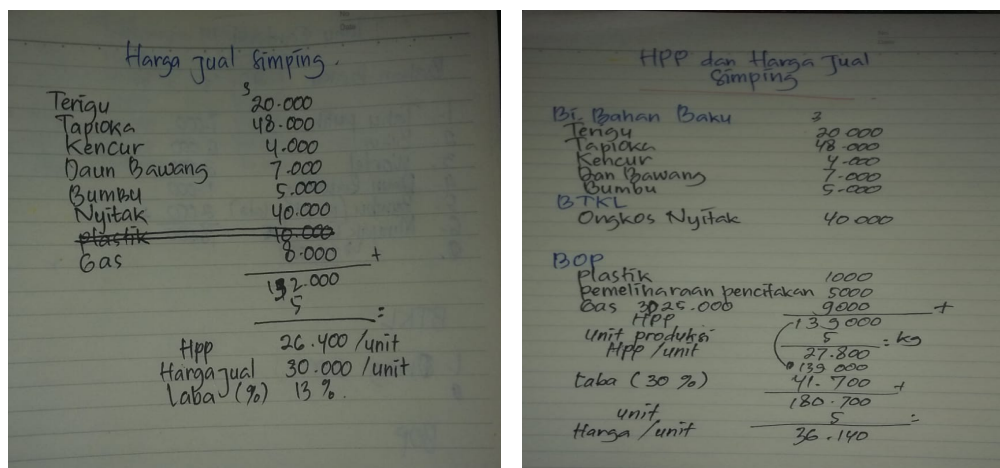 Harga jual Simping.
Terigu 20.000
Tapioka 48.000
Kencur 4.000
Daun Bawang 7.000
Bumbu 5.000
Nyitak 40.000
plastik 10.000
Gas 8.000 +
132.000
5 =
Hpp 26.400 /unit
Harga jual 30.000 /unit
Laba (%) 13 %.
HPP dan Harga Jual
Simping
Bi. Bahan Baku
Terigu 20 000
Tapioka 48.000
Kencur 4.000
Dan Bawang 7.000
Bumbu 5.000
BTKL
Ongkos Nyitak 40 000
BOP
plastik 1000
pemeliharaan pencitakan 5000
Gas 25.000 9000 +
HPP 139000
unit produksi 5 = kg
HPP /unit 27.800
139 000
Laba (30 %) 41.700 +
180.700
unit 5 =
Harga /unit 36.140